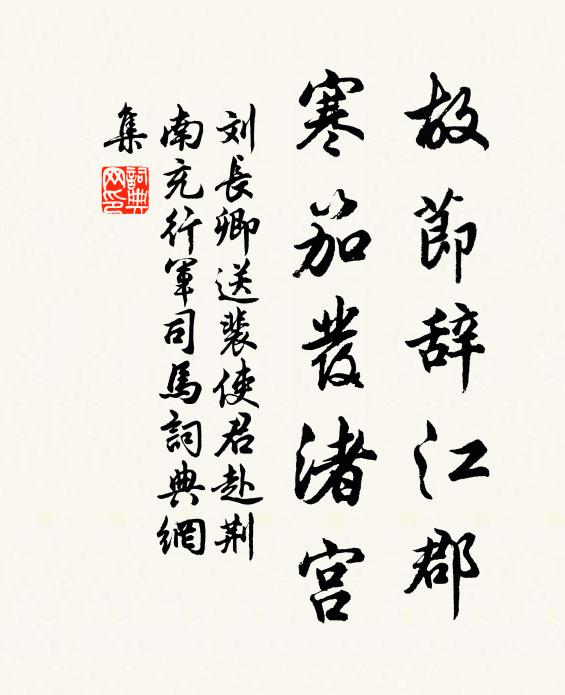 故節辞江郡
寒笳發渚宮
刘長卿送裴使君赴荆
南充行軍司馬詞典網
集
詞典網印